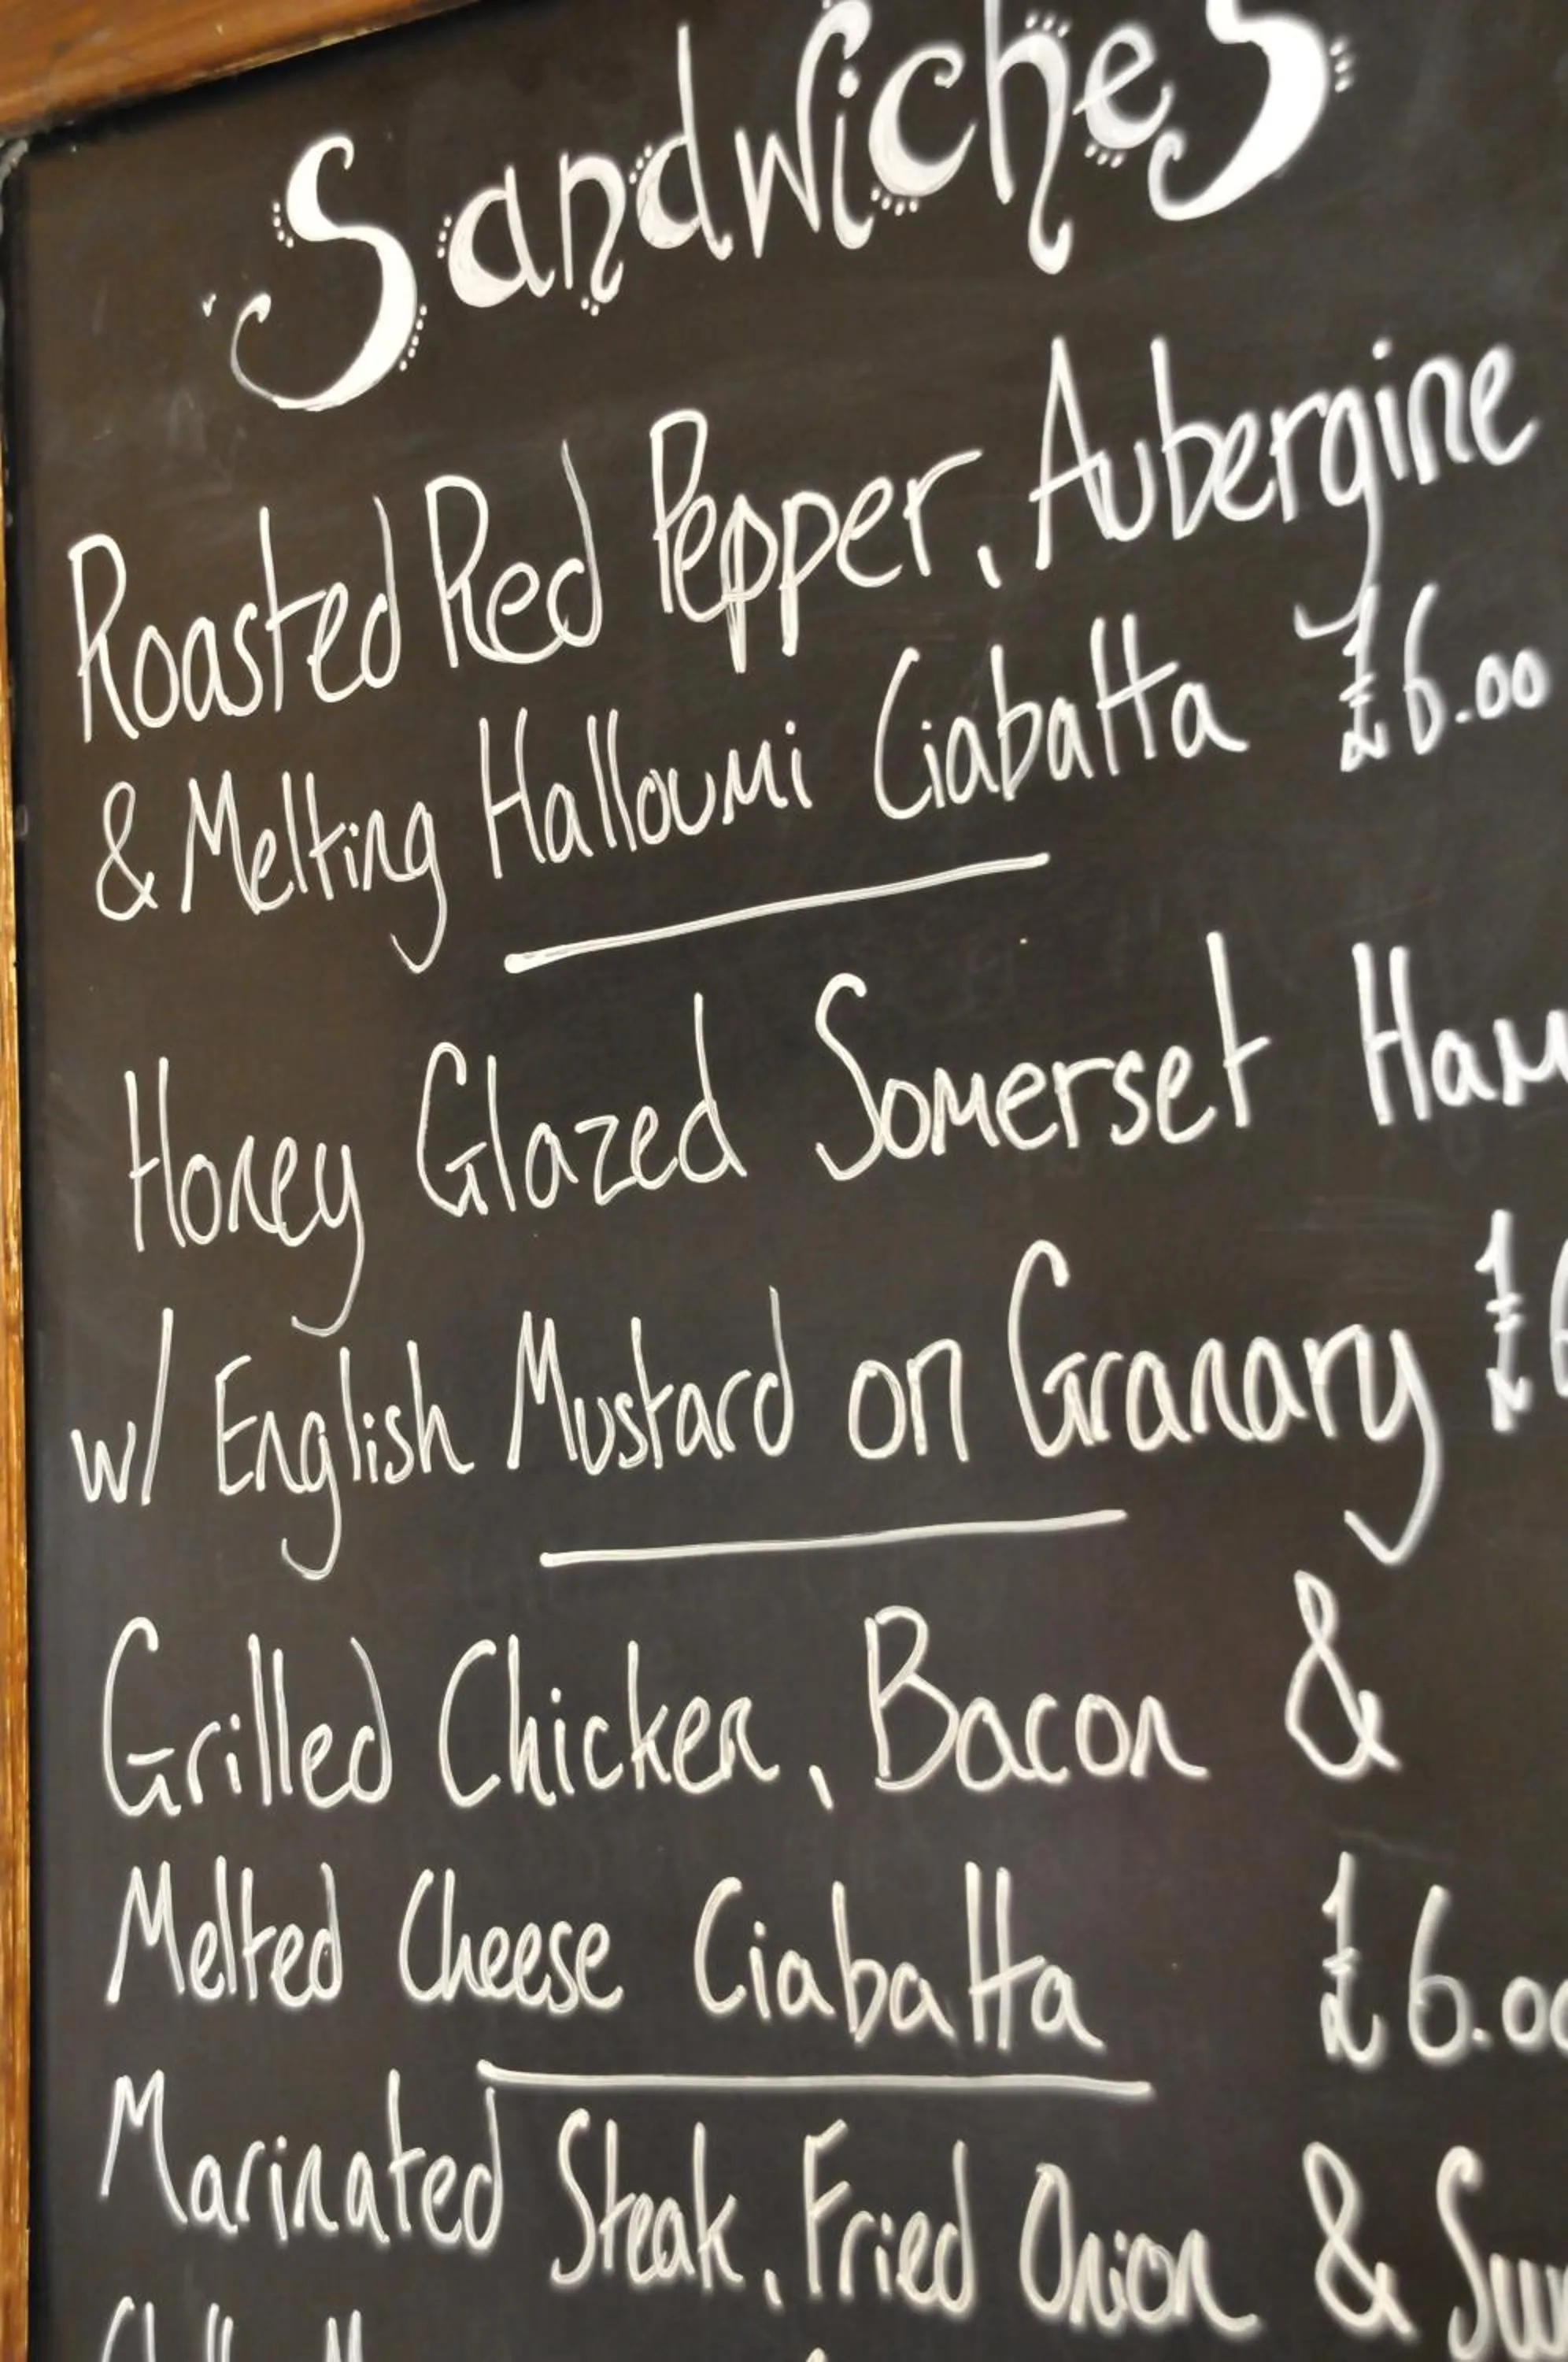 Sandwiches
Roasted Red Pepper, Aubergine
& Melting Halloumi Ciabatta £6.00
Honey Glazed Somerset Ham
w/ English Mustard on Granary £6
Grilled Chicken, Bacon &
Melted Cheese Ciabatta £6.00
Marinated Steak, Fried Onion &